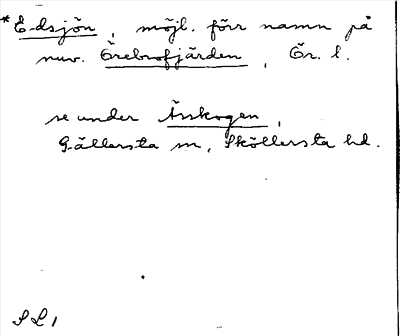 *Edsjön, möjl. förr namn på
nuv. Örebrofjärden, Ör. l.
se under Ässkogen,
Gällersta sn, Sköllersta hd.
SL1